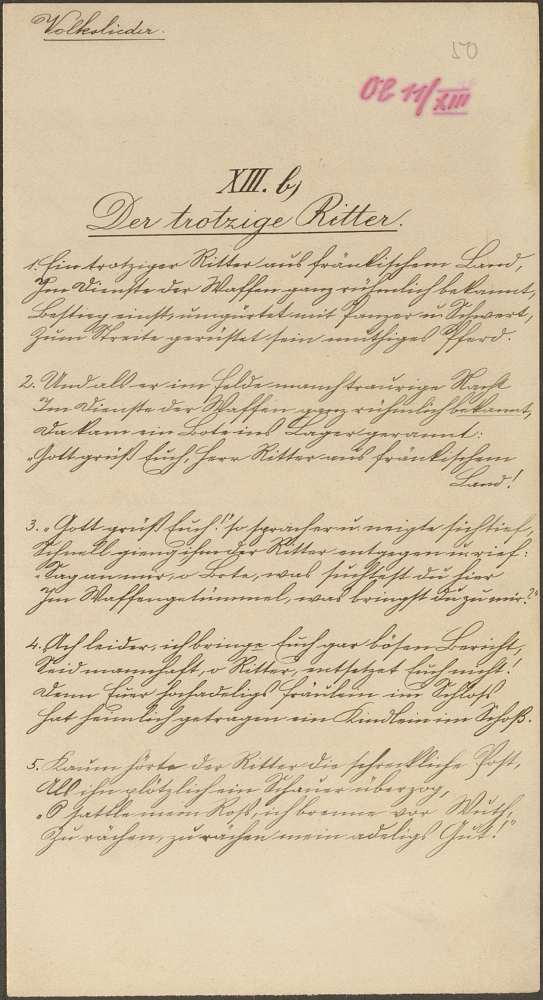 Volkslieder.
50
Ol 11/XIII
XIII. b,
Der trotzige Ritter.
1. Ein trotziger Ritter aus fränkischem Land,
Im Dienste der Waffen ganz rühmlich bekannt,
Bestieg einst, umgürtet mit Panzer u. Schwert,
Zum Streite gerüstet sein muthiges Pferd.
2. Und als er im Felde manch traurige Nacht
Im Dienste der Waffen ganz rühmlich bekannt,
Da kam ein Bote ins Lager gerannt:
„Gott grüß Euch, Herr Ritter aus fränkischem
Land!
3. „Gott grüß Euch!" so sprach er u. neigte sich tief,
Schnell gieng ihm der Ritter entgegen u. rief:
„Sag an mir, o Bote, was suchtest du hier
Im Waffengetümmel, was bringst du zu mir?"
4. Ach leider, ich bringe Euch gar bösen Bericht,
Seid mannhaft, o Ritter, entsetzet Euch nicht!
Denn Euer hochadeligs Fräulein im Schloß
Hat heimlich getragen ein Kindlein im Schoß.
5. Kaum hörte der Ritter die schreckliche Post,
Als ihn plötzlich ein Schauer überzog,
„O sattle mein Roß, ich brenne vor Wuth,
Zu rächen, zu rächen mein adeligs Gut!"